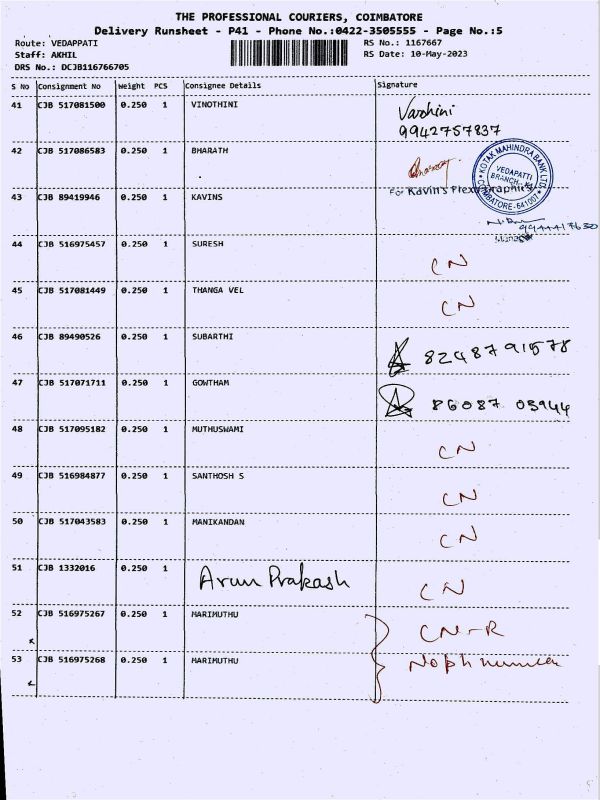 THE PROFESSIONAL COURIERS, COIMBATORE
Delivery Runsheet - P41 - Phone No.:0422-3505555 - Page No.:5
Route: VEDAPPATI RS No.: 1167667
Staff: AKHIL RS Date: 10-May-2023
DRS No.: DCJB116766705
S No Consignment No Weight PCS Consignee Details Signature
41 CJB 517081500 0.250 1 VINOTHINI Varshini
9942757837
42 CJB 517086583 0.250 1 BHARATH
KOTAK MAHINDRA BANK LTD.
VEDAPATTI
BRANCH
COIMBATORE-641007
For Kavin's Flexographics
43 CJB 89419946 0.250 1 KAVINS
9944417630
Manager
44 CJB 516975457 0.250 1 SURESH CN
45 CJB 517081449 0.250 1 THANGA VEL CN
46 CJB 89490526 0.250 1 SUBARTHI 8248791578
47 CJB 517071711 0.250 1 GOWTHAM 86087 03944
48 CJB 517095182 0.250 1 MUTHUSWAMI CN
49 CJB 516984877 0.250 1 SANTHOSH S CN
50 CJB 517043583 0.250 1 MANIKANDAN CN
51 CJB 1332016 0.250 1 Arun Prakash CN
52 CJB 516975267 0.250 1 MARIMUTHU CN-R
53 CJB 516975268 0.250 1 MARIMUTHU No ph number